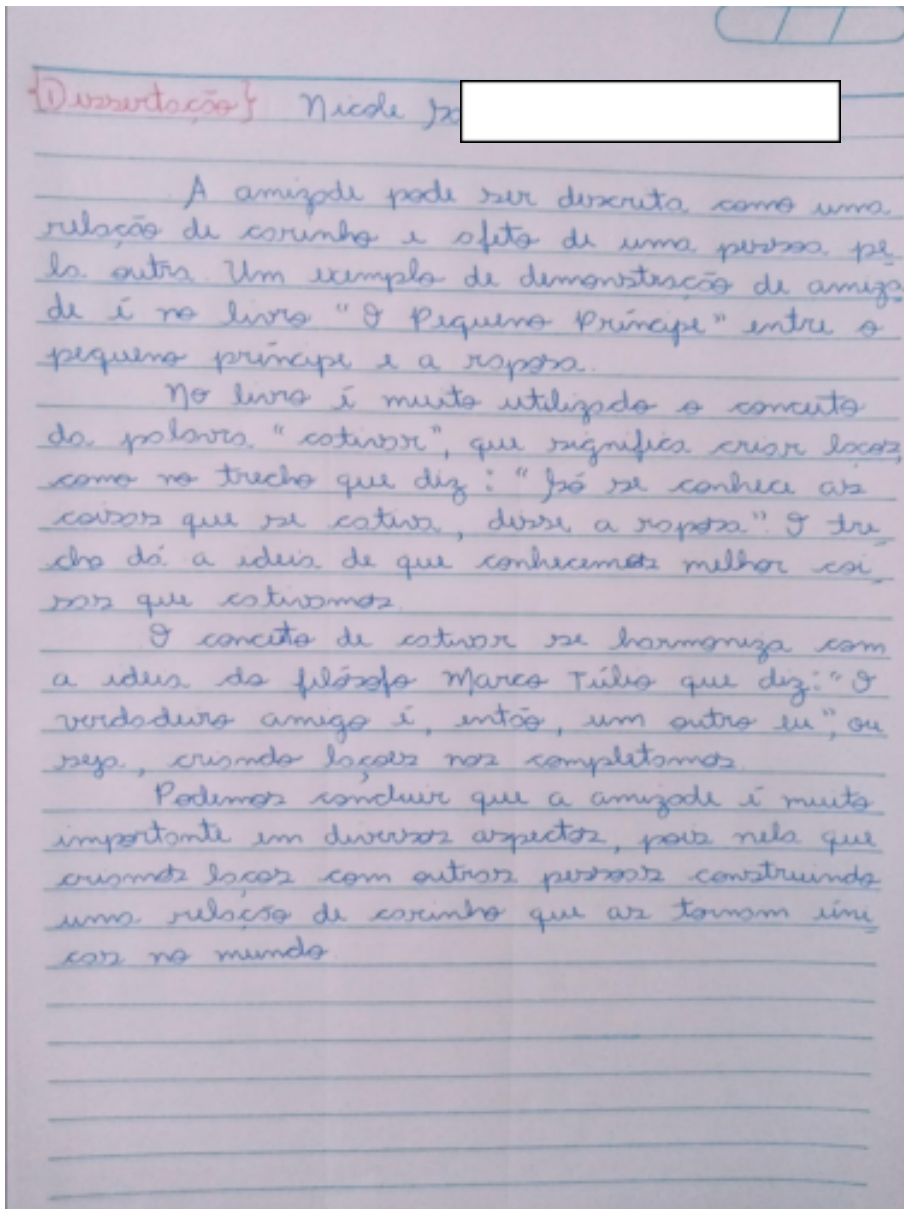 {Dissertação} Nicole
A amizade pode ser descrita como uma
relação de carinho e afeto de uma pessoa pe
la outra. Um exemplo de demonstração de amiza
de é no livro "O Pequeno Príncipe" entre o
pequeno príncipe e a raposa.
No livro é muito utilizado o conceito
da palavra "cativar", que significa criar laços,
como no trecho que diz: "Só se conhece as
coisas que se cativa, disse a raposa". O tre
cho dá a ideia de que conhecemos melhor coi
sas que cativamos.
O conceito de cativar se harmoniza com
a ideia do filósofo Marco Túlio que diz: "O
verdadeiro amigo é, então, um outro eu", ou
seja, criando laços nos completamos.
Podemos concluir que a amizade é muito
importante em diversos aspectos, pois nela que
criamos laços com outras pessoas construindo
uma relação de carinho que as tornam úni
cas no mundo.